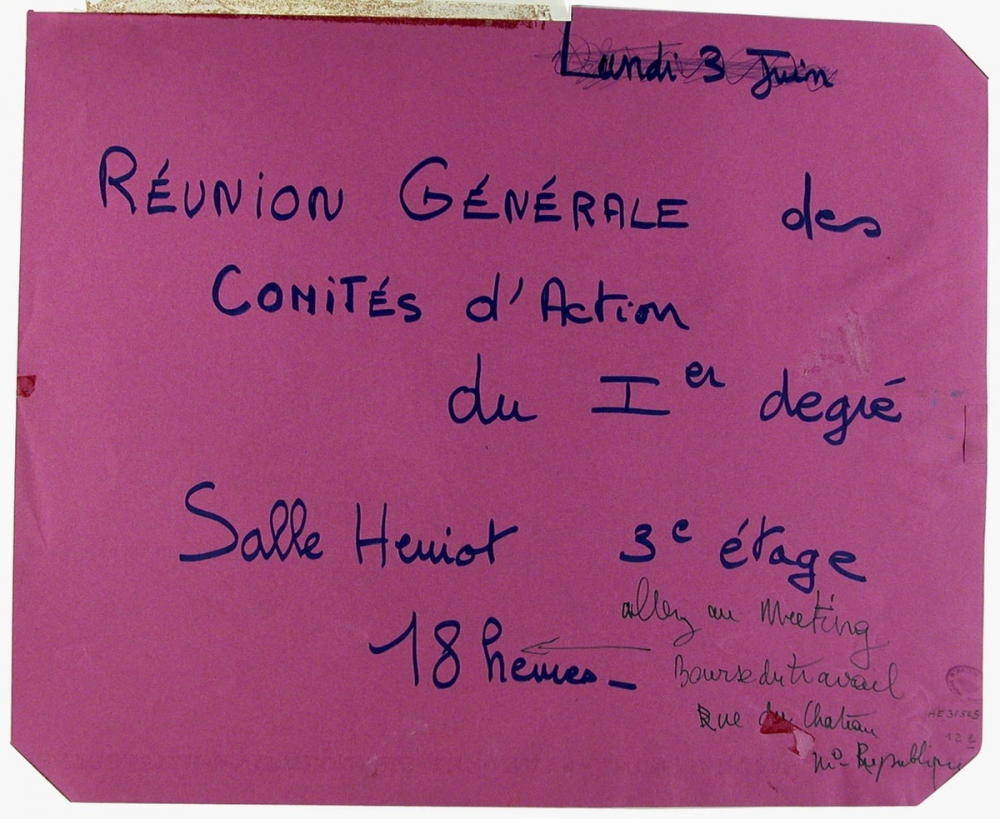 Lundi 3 Juin
RÉUNION GÉNÉRALE des
COMITÉS d'Action
du Ier degré
Salle Heuiot 3e étage
allez au Meeting
18 heures_
Bourse du travail
Rue du Chateau
Mo République